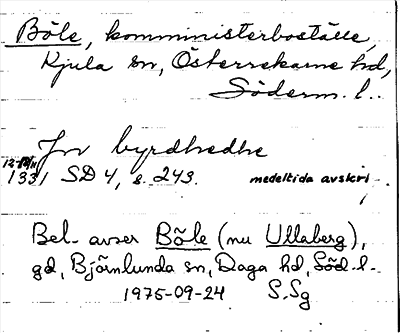 Böle, komministerboställe,
Kjula sn, Österrekarne hd,
Söderm. l.
Jn byrdhedhe
1331 SD 4, s. 243. medeltida avskri
Bel. avser Böle (nu Ullaberg),
gd, Björnlunda sn, Daga hd, Söd. l.
1975-09-24 S. Sg